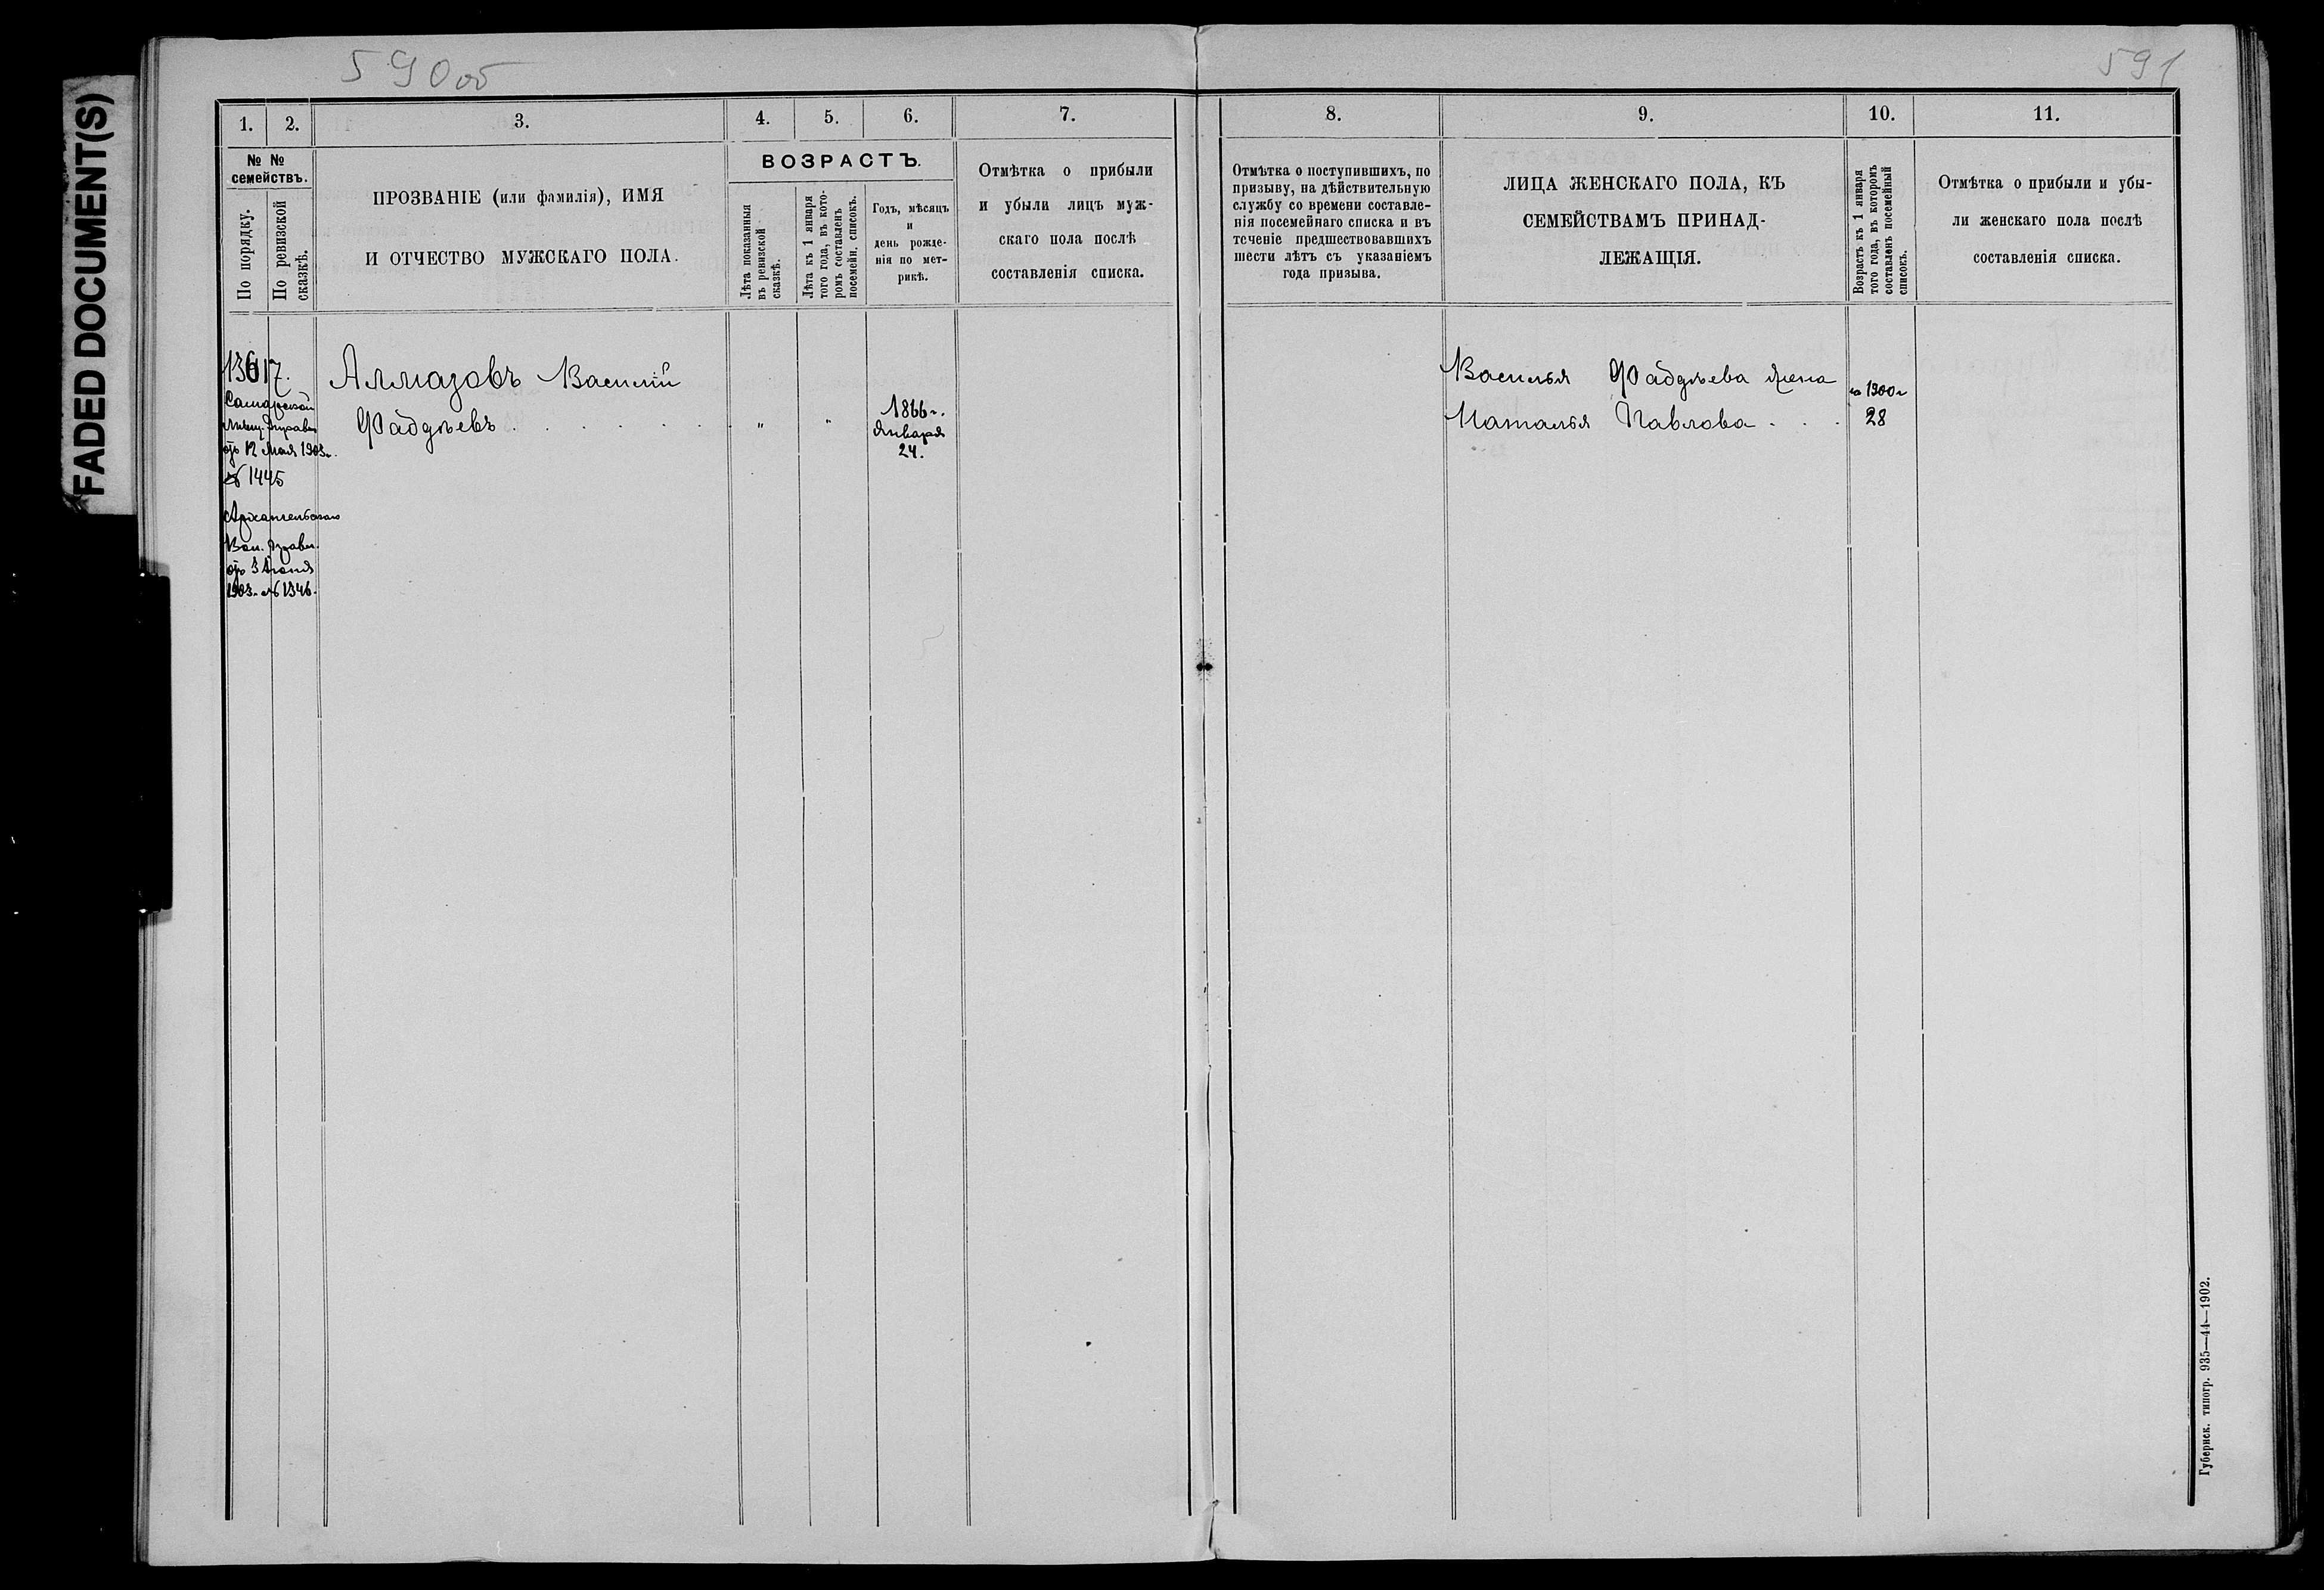 FADED DOCUMENT(S)
590об
591
1. 2. 3. 4. 5. 6. 7.
№ №
семействъ.
По порядку.
По ревизской
сказкѣ.
ПРОЗВАНІЕ (или фамилія), ИМЯ
И ОТЧЕСТВО МУЖСКАГО ПОЛА.
ВОЗРАСТЪ.
Лѣта показанныя
въ ревизской
сказкѣ.
Лѣта къ 1 января
того года, въ кото-
ромъ составленъ
посемейн. списокъ.
Годъ, мѣсяцъ
и
день рожде-
нія по мет-
рикѣ.
Отмѣтка о прибыли
и убыли лицъ муж-
скаго пола послѣ
составленія списка.
13617.
Самарской
Мѣщ. Управы
отъ 12 Мая 1903г.
№ 1445
Архангельскаго
Вол. Правл.
отъ 3 Іюня
1903г. № 1346.
Алмазовъ Василій
Фаддѣевъ . . . . . . „ „
1866г.
Января
24.
8. 9. 10. 11.
Отмѣтка о поступившихъ, по
призыву, на дѣйствительную
службу со времени составле-
нія посемейнаго списка и въ
теченіе предшествовавшихъ
шести лѣтъ съ указаніемъ
года призыва.
ЛИЦА ЖЕНСКАГО ПОЛА, КЪ
СЕМЕЙСТВАМЪ ПРИНАД-
ЛЕЖАЩІЯ.
Возрастъ къ 1 января
того года, въ которомъ
составленъ посемейный
списокъ.
Отмѣтка о прибыли и убы-
ли женскаго пола послѣ
составленія списка.
Василья Фаддѣева жена
Наталья Павлова . . .
1900г
28
Губернск. типогр. 935—44—1902.